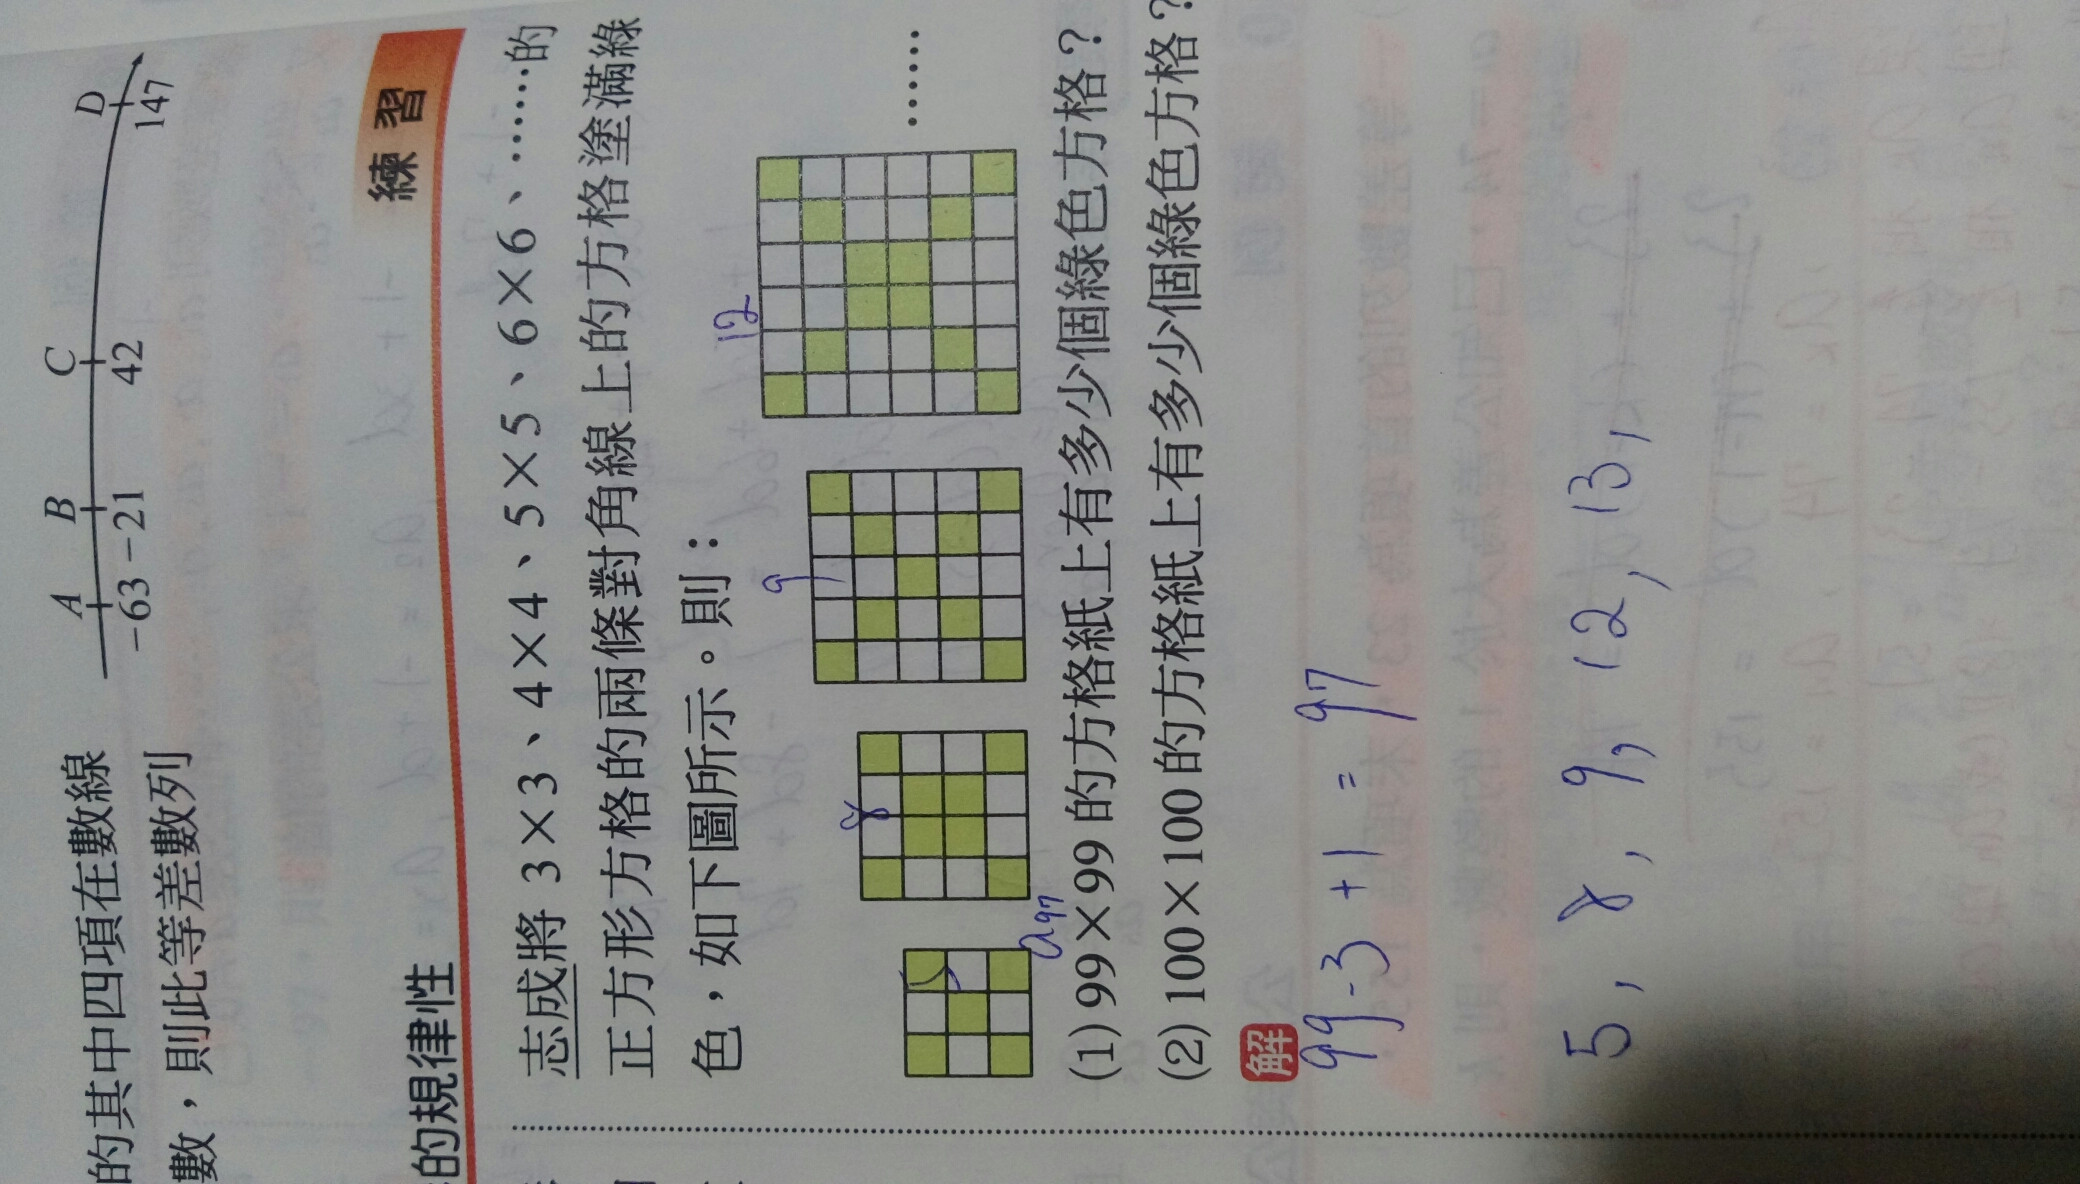 的其中四項在數線
數，則此等差數列
A B C D
-63 -21 42 147
的規律性
練習
志成將 3×3、4×4、5×5、6×6、……的
正方形方格的兩條對角線上的方格塗滿綠
色，如下圖所示。則：
8 9 12
……
a97
(1) 99×99 的方格紙上有多少個綠色方格？
(2) 100×100 的方格紙上有多少個綠色方格？
解
99-3+1=97
5, 8, 9, 12, 13,